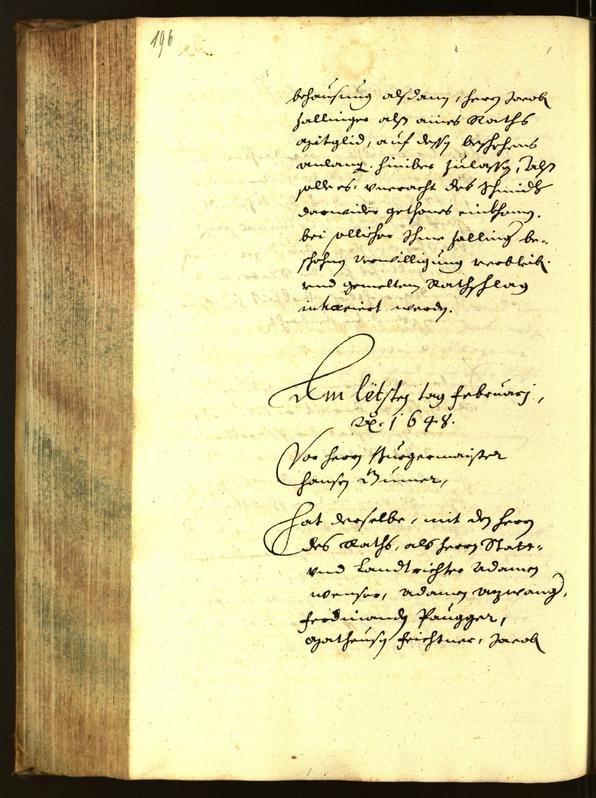 196
behausung alsdann, herrn Jacob
Hallinger alß aines Raths
mitglid, auf dessen beschehens
anlang. hinüber zulassen, alß
solle es, vneracht des Schmidts
darwider gethones einkhom.
bei sollicher Ihme Halling. be-
schehnen verwilligung verbleib.
vnd gemeltem Rathschlag
werden.
Am letsten tag Februarj,
Ao. 1648.
Vor herrn Burgermaister
Hansen
Hat derselbe, mit den herrn
des Raths, als herrn Statt-
vnd Landtrichter Adamen
Wenser, Adamen
Ferdinanden Paugger,
Matheusen Feichtner, Jacob